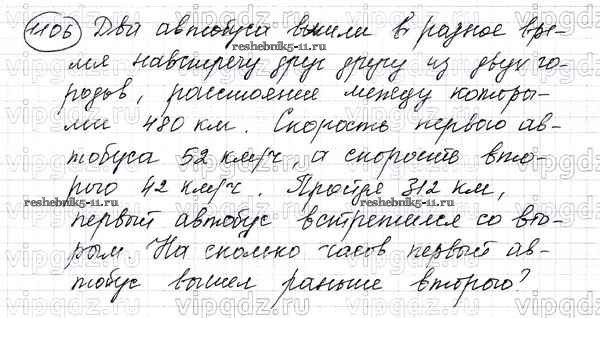 1106 Два автобуса вышли в разное вре-
мя навстречу друг другу из двух го-
родов, расстояние между которы-
ми 480 км. Скорость первого ав-
тобуса 52 км/ч, а скорость вто-
рого 42 км/ч. Пройдя 312 км,
первый автобус встретился со вто-
рым. На сколько часов первый ав-
тобус вышел раньше второго?
reshebnik5-11.ru
reshebnik5-11.ru
reshebnik5-11.ru
vipgdz.ru